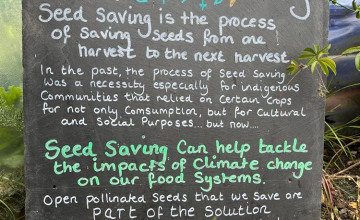 Seed Saving is the process
of Saving Seeds from one
harvest to the next harvest.
In the past, the process of Seed Saving
was a necessity especially for indigenous
Communities that relied on Certain Crops
for not only Comsumption, but for Cultural
and Social Purposes... but now....
Seed Saving Can help tackle
the impacts of Climate change
on our food Systems.
Open pollinated Seeds that we Save are
PART of the Solution